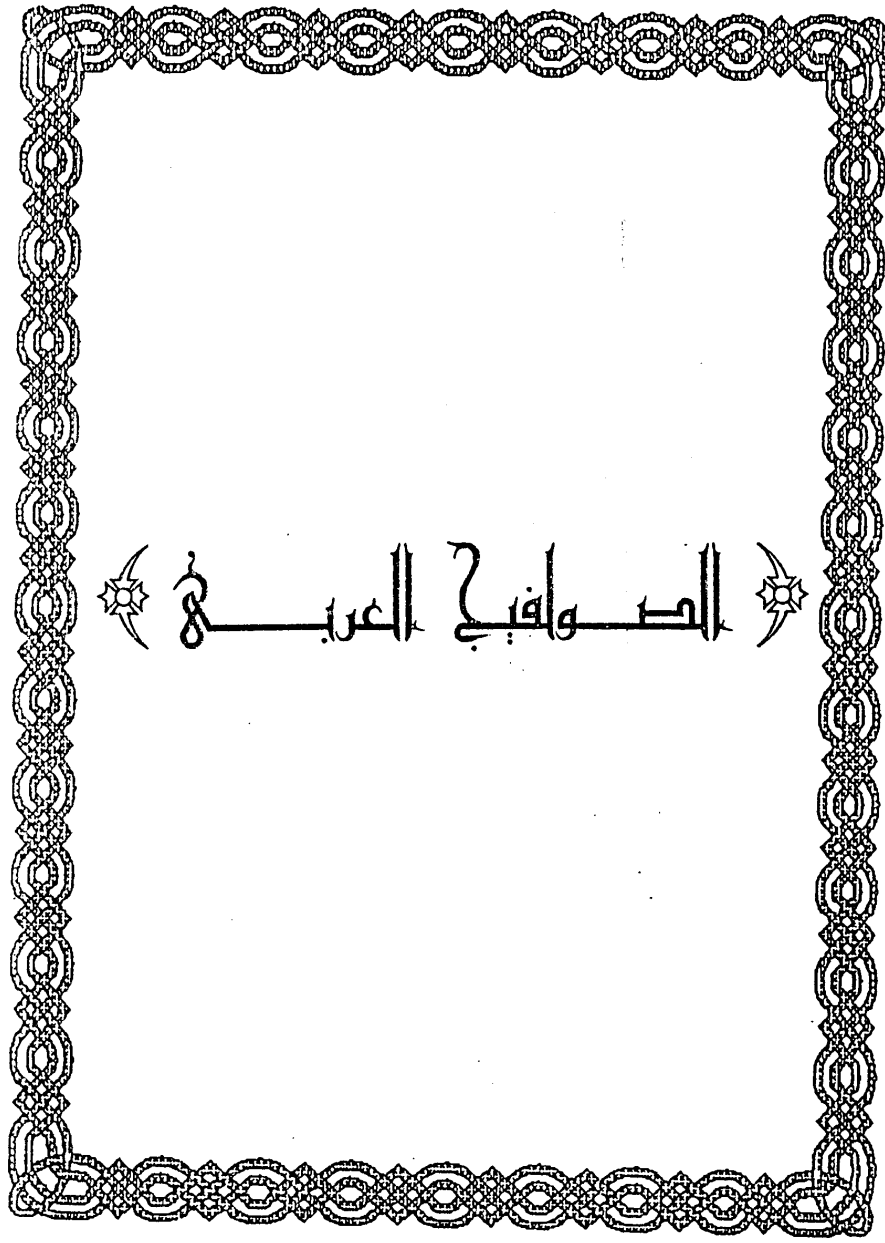 الصوافيج العربية